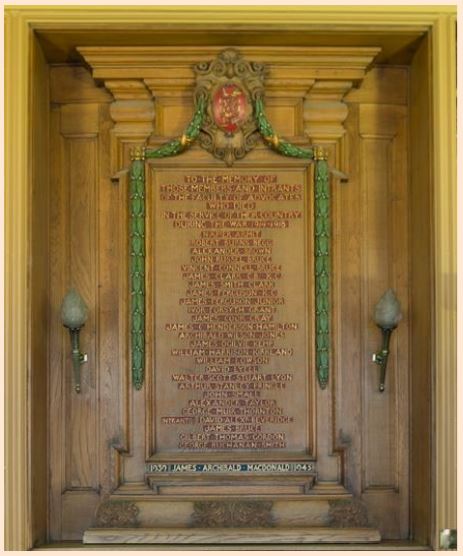 TO THE MEMORY OF
THOSE MEMBERS AND INTRANTS
OF THE FACULTY OF ADVOCATES
WHO DIED
IN THE SERVICE OF THEIR COUNTRY
DURING THE WAR 1914-1918
NAPIER ARMIT
ROBERT BURNS BEGG
ALEXANDER BROWN
JOHN RUSSEL BRUCE
VINCENT CONNELL BRUCE
JAMES CLARK C.B. K.C.
JAMES SMITH CLARK
JAMES FERGUSON K.C.
JAMES FERGUSON JUNIOR
IVOR FORSYTH GRANT
JAMES COOK GRAY
JAMES C HENDERSON HAMILTON
ARCHIBALD WILSON JONES
JAMES OGILVIE KEMP
WILLIAM HARRISON KIRKLAND
WILLIAM LOWSON
DAVID LYELL
WALTER SCOTT STUART LYON
ARTHUR STANLEY PRINGLE
JOHN SMALL
ALEXANDER TAYLOR
GEORGE MUIR THORNTON
INTRANTS DAVID ALEXR BEVERIDGE
JAMES BRUCE
GILBERT THOMAS GORDON
GEORGE BUCHANAN SMITH
1939 JAMES ARCHIBALD MACDONALD 1945